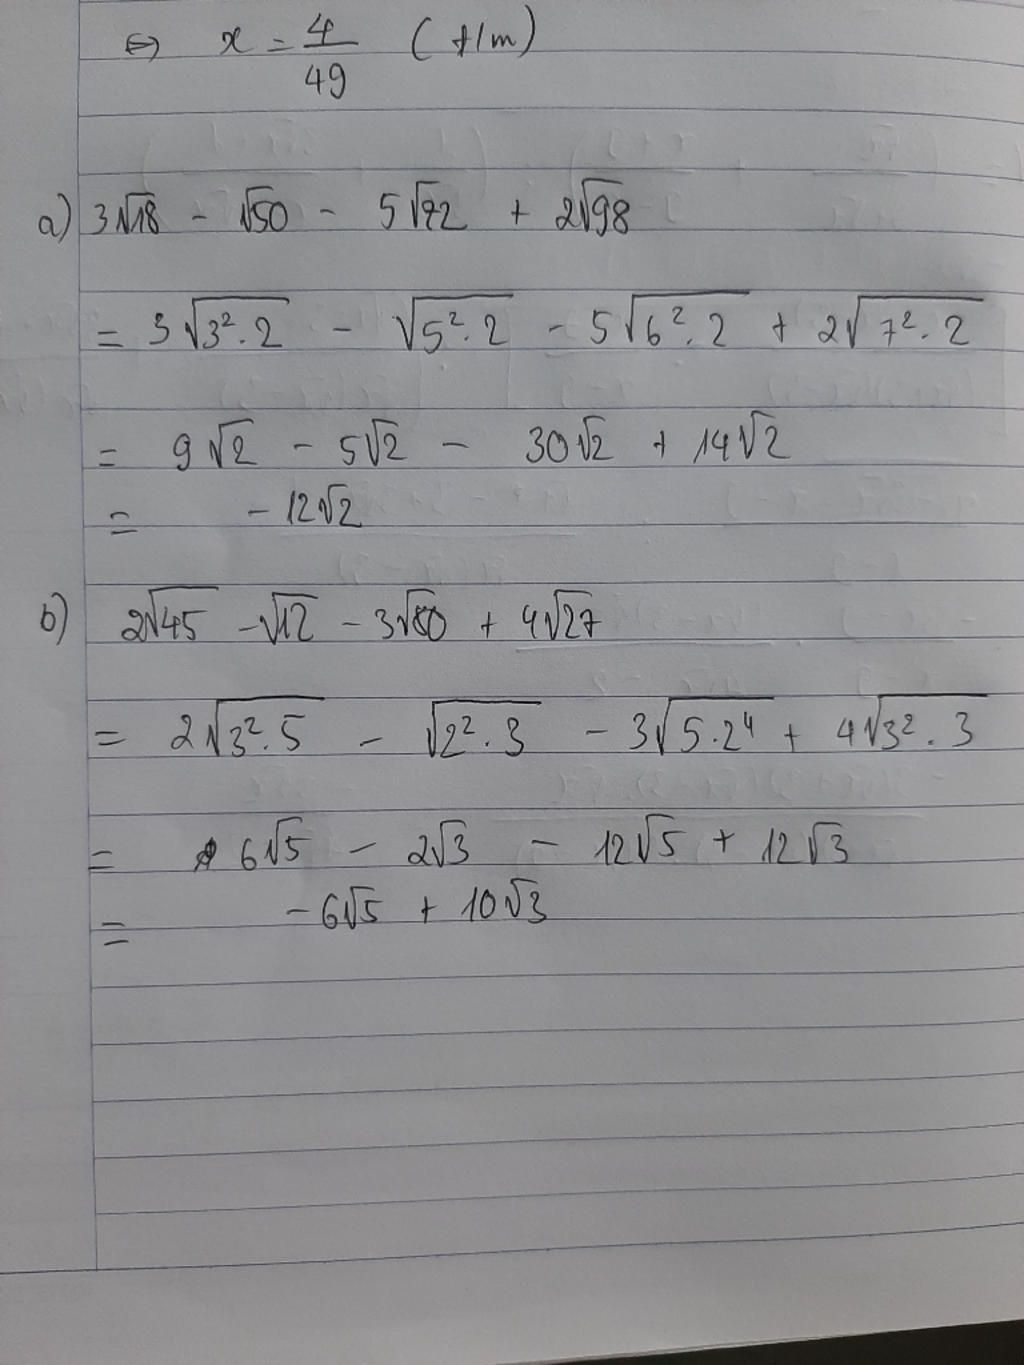 ⇔ x = 4/49 (t/m)
a) 3√18 - √50 - 5√72 + 2√98
= 3√3².2 - √5².2 - 5√6².2 + 2√7².2
= 9√2 - 5√2 - 30√2 + 14√2
= -12√2
b) 2√45 - √12 - 3√80 + 4√27
= 2√3².5 - √2².3 - 3√5.2⁴ + 4√3².3
= 6√5 - 2√3 - 12√5 + 12√3
= -6√5 + 10√3